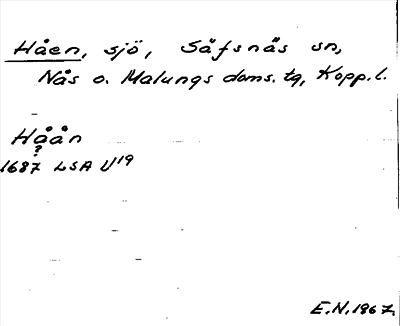 Håen, sjö, Säfsnäs sn,
Nås o. Malungs doms. tg, Kopp. l.
Håån
?
1687 LSA U¹⁹
E.N. 1967.